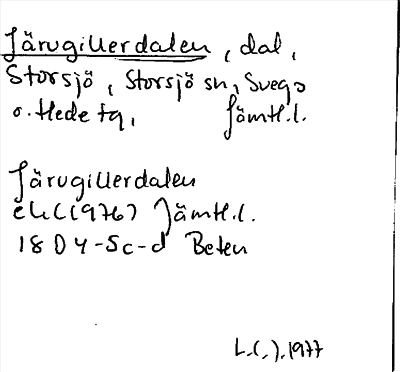 Järugillerdalen, dal,
Storsjö, Storsjö sn, Svegs
o. Hede tg, Jämtl.l.
Järugillerdalen
ek (1976) Jämtl.l.
18 D 4-5c-d Beten
1977